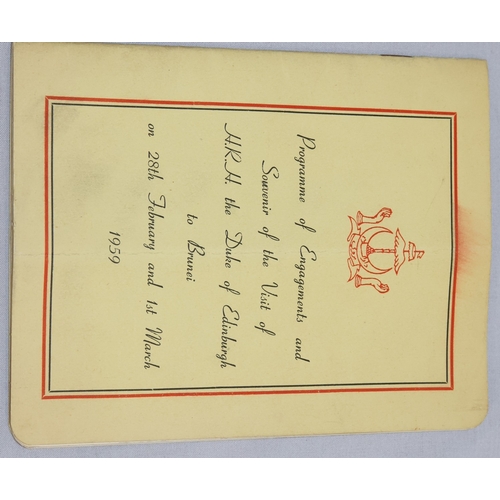 Programme of Engagements and
Souvenir of the Visit of
H.R.H. the Duke of Edinburgh
to Brunei
on 28th February and 1st March
1959